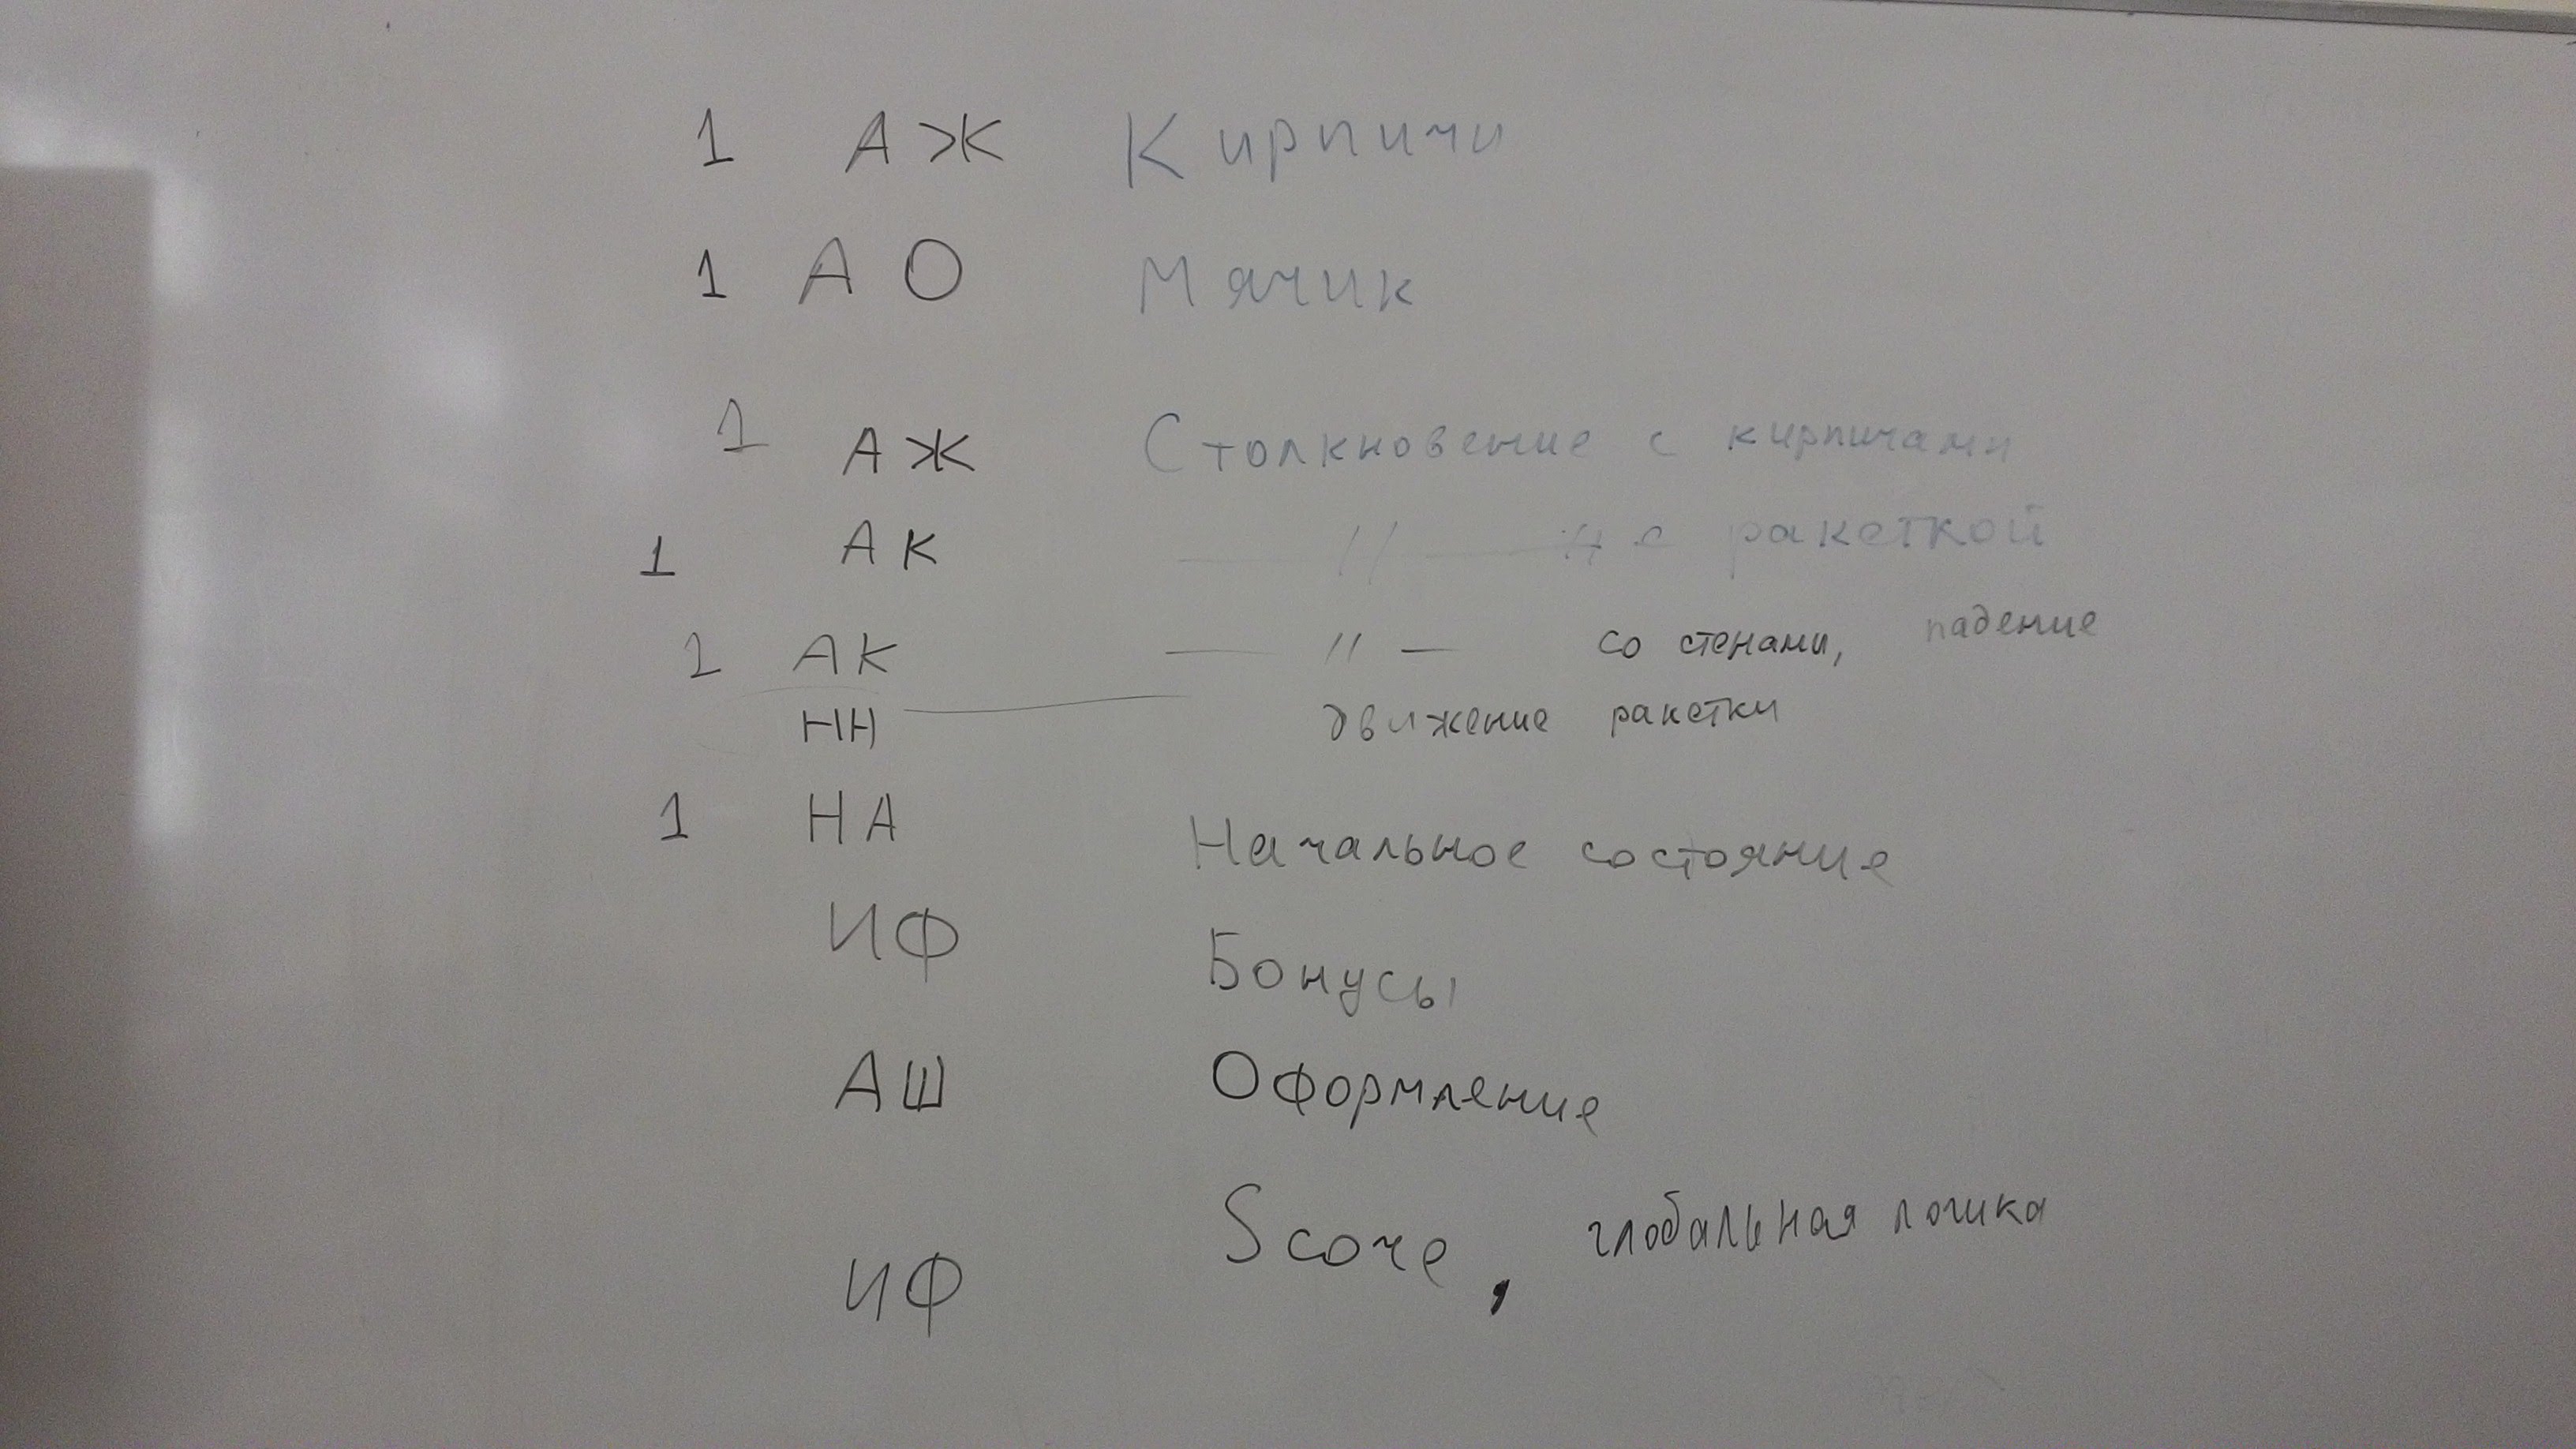 1 АЖ Кирпичи
1 АО Мячик
1 АЖ Столкновение с кирпичами
1 АК — // — с ракеткой
1 АК — // — со стенами, падение
НН — движение ракетки
1 НА Начальное состояние
ИФ Бонусы
АШ Оформление
ИФ Score, глобальная логика